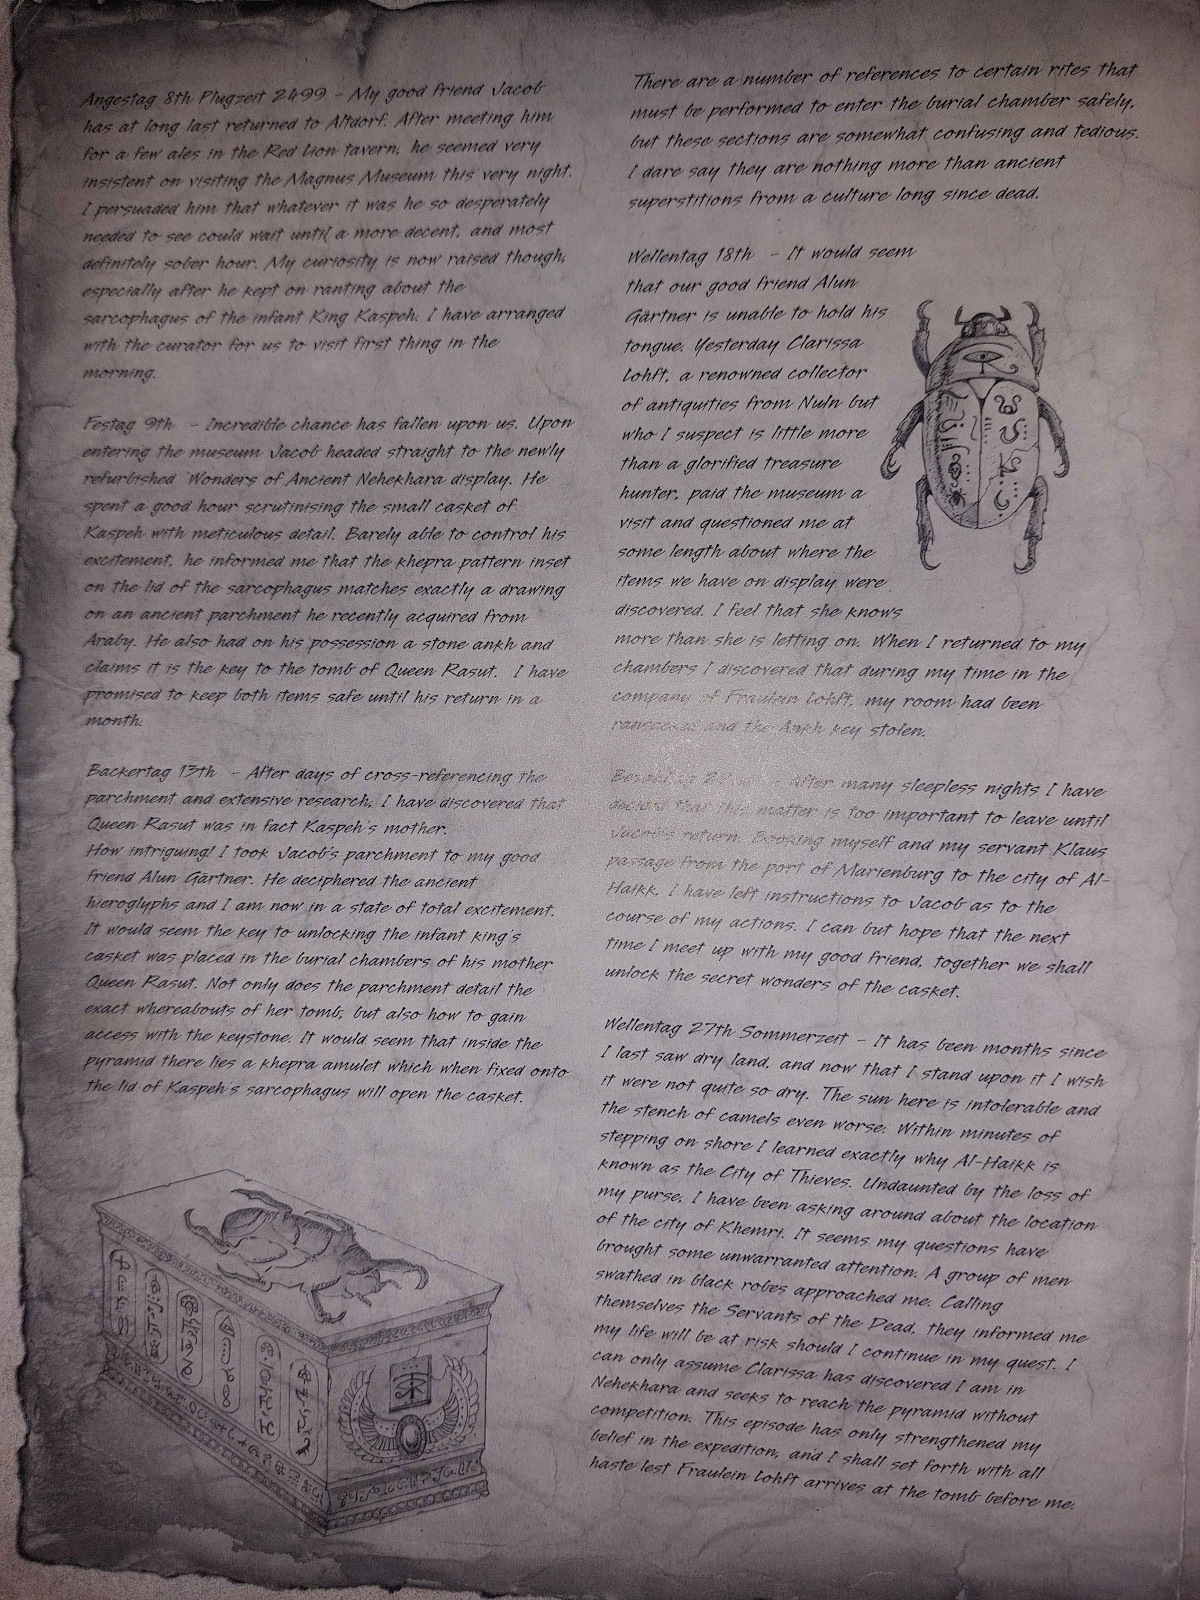 Angestag 8th Pflugzeit 2499 - My good friend Jacob
has at long last returned to Altdorf. After meeting him
for a few ales in the Red Lion tavern, he seemed very
insistent on visiting the Magnus Museum this very night.
I persuaded him that whatever it was he so desperately
needed to see could wait until a more decent, and most
definitely sober hour. My curiosity is now raised though,
especially after he kept on ranting about the
sarcophagus of the infant King Kaspeh. I have arranged
with the curator for us to visit first thing in the
morning.
Festag 9th - Incredible chance has fallen upon us. Upon
entering the museum Jacob headed straight to the newly
refurbished Wonders of Ancient Nehekhara display. He
spent a good hour scrutinising the small casket of
Kaspeh with meticulous detail. Barely able to control his
excitement, he informed me that the khepra pattern inset
on the lid of the sarcophagus matches exactly a drawing
on an ancient parchment he recently acquired from
Araby. He also had on his possession a stone ankh and
claims it is the key to the tomb of Queen Rasut. I have
promised to keep both items safe until his return in a
month.
Backertag 13th - After days of cross-referencing the
parchment and extensive research, I have discovered that
Queen Rasut was in fact Kaspeh's mother.
How intriguing! I took Jacob's parchment to my good
friend Alun Gärtner. He deciphered the ancient
hieroglyphs and I am now in a state of total excitement.
It would seem the key to unlocking the infant king's
casket was placed in the burial chambers of his mother
Queen Rasut. Not only does the parchment detail the
exact whereabouts of her tomb, but also how to gain
access with the keystone. It would seem that inside the
pyramid there lies a khepra amulet which when fixed onto
the lid of Kaspeh's sarcophagus will open the casket.
There are a number of references to certain rites that
must be performed to enter the burial chamber safely,
but these sections are somewhat confusing and tedious.
I dare say they are nothing more than ancient
superstitions from a culture long since dead.
Wellentag 18th - It would seem
that our good friend Alun
Gärtner is unable to hold his
tongue. Yesterday Clarissa
Lohft, a renowned collector
of antiquities from Nuln but
who I suspect is little more
than a glorified treasure
hunter, paid the museum a
visit and questioned me at
some length about where the
items we have on display were
discovered. I feel that she knows
more than she is letting on. When I returned to my
chambers I discovered that during my time in the
company of Fraulein Lohft, my room had been
ransacked and the Ankh key stolen.
- After many sleepless nights I have
decided that this matter is too important to leave until
Jacob's return. Booking myself and my servant Klaus
passage from the port of Marienburg to the city of Al-
Haikk, I have left instructions to Jacob as to the
course of my actions. I can but hope that the next
time I meet up with my good friend, together we shall
unlock the secret wonders of the casket.
Wellentag 27th Sommerzeit - It has been months since
I last saw dry land, and now that I stand upon it I wish
it were not quite so dry. The sun here is intolerable and
the stench of camels even worse. Within minutes of
stepping on shore I learned exactly why Al-Haikk is
known as the City of Thieves. Undaunted by the loss of
my purse, I have been asking around about the location
of the city of Khemri. It seems my questions have
brought some unwarranted attention. A group of men
swathed in black robes approached me. Calling
themselves the Servants of the Dead, they informed me
my life will be at risk should I continue in my quest. I
can only assume Clarissa has discovered I am in
Nehekhara and seeks to reach the pyramid without
competition. This episode has only strengthened my
belief in the expedition, and I shall set forth with all
haste lest Fraulein Lohft arrives at the tomb before me.